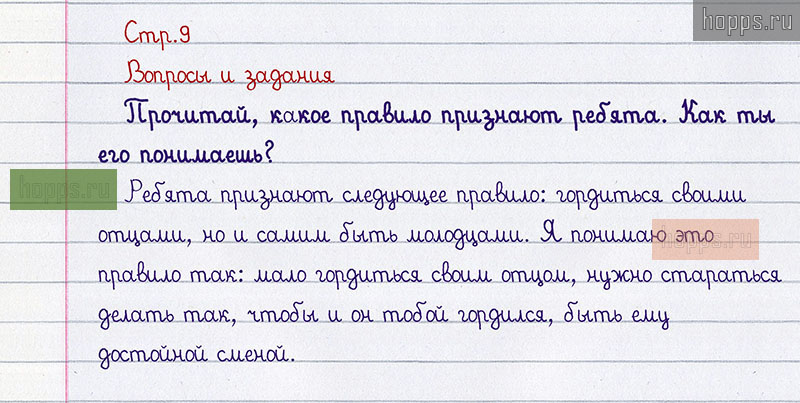 hopps.ru
Стр.9
Вопросы и задания
Прочитай, какое правило признают ребята. Как ты
его понимаешь?
hopps.ru
Ребята признают следующее правило: гордиться своими
отцами, но и самим быть молодцами. Я понимаю это
hopps.ru
правило так: мало гордиться своим отцом, нужно стараться
делать так, чтобы и он тобой гордился, быть ему
достойной сменой.